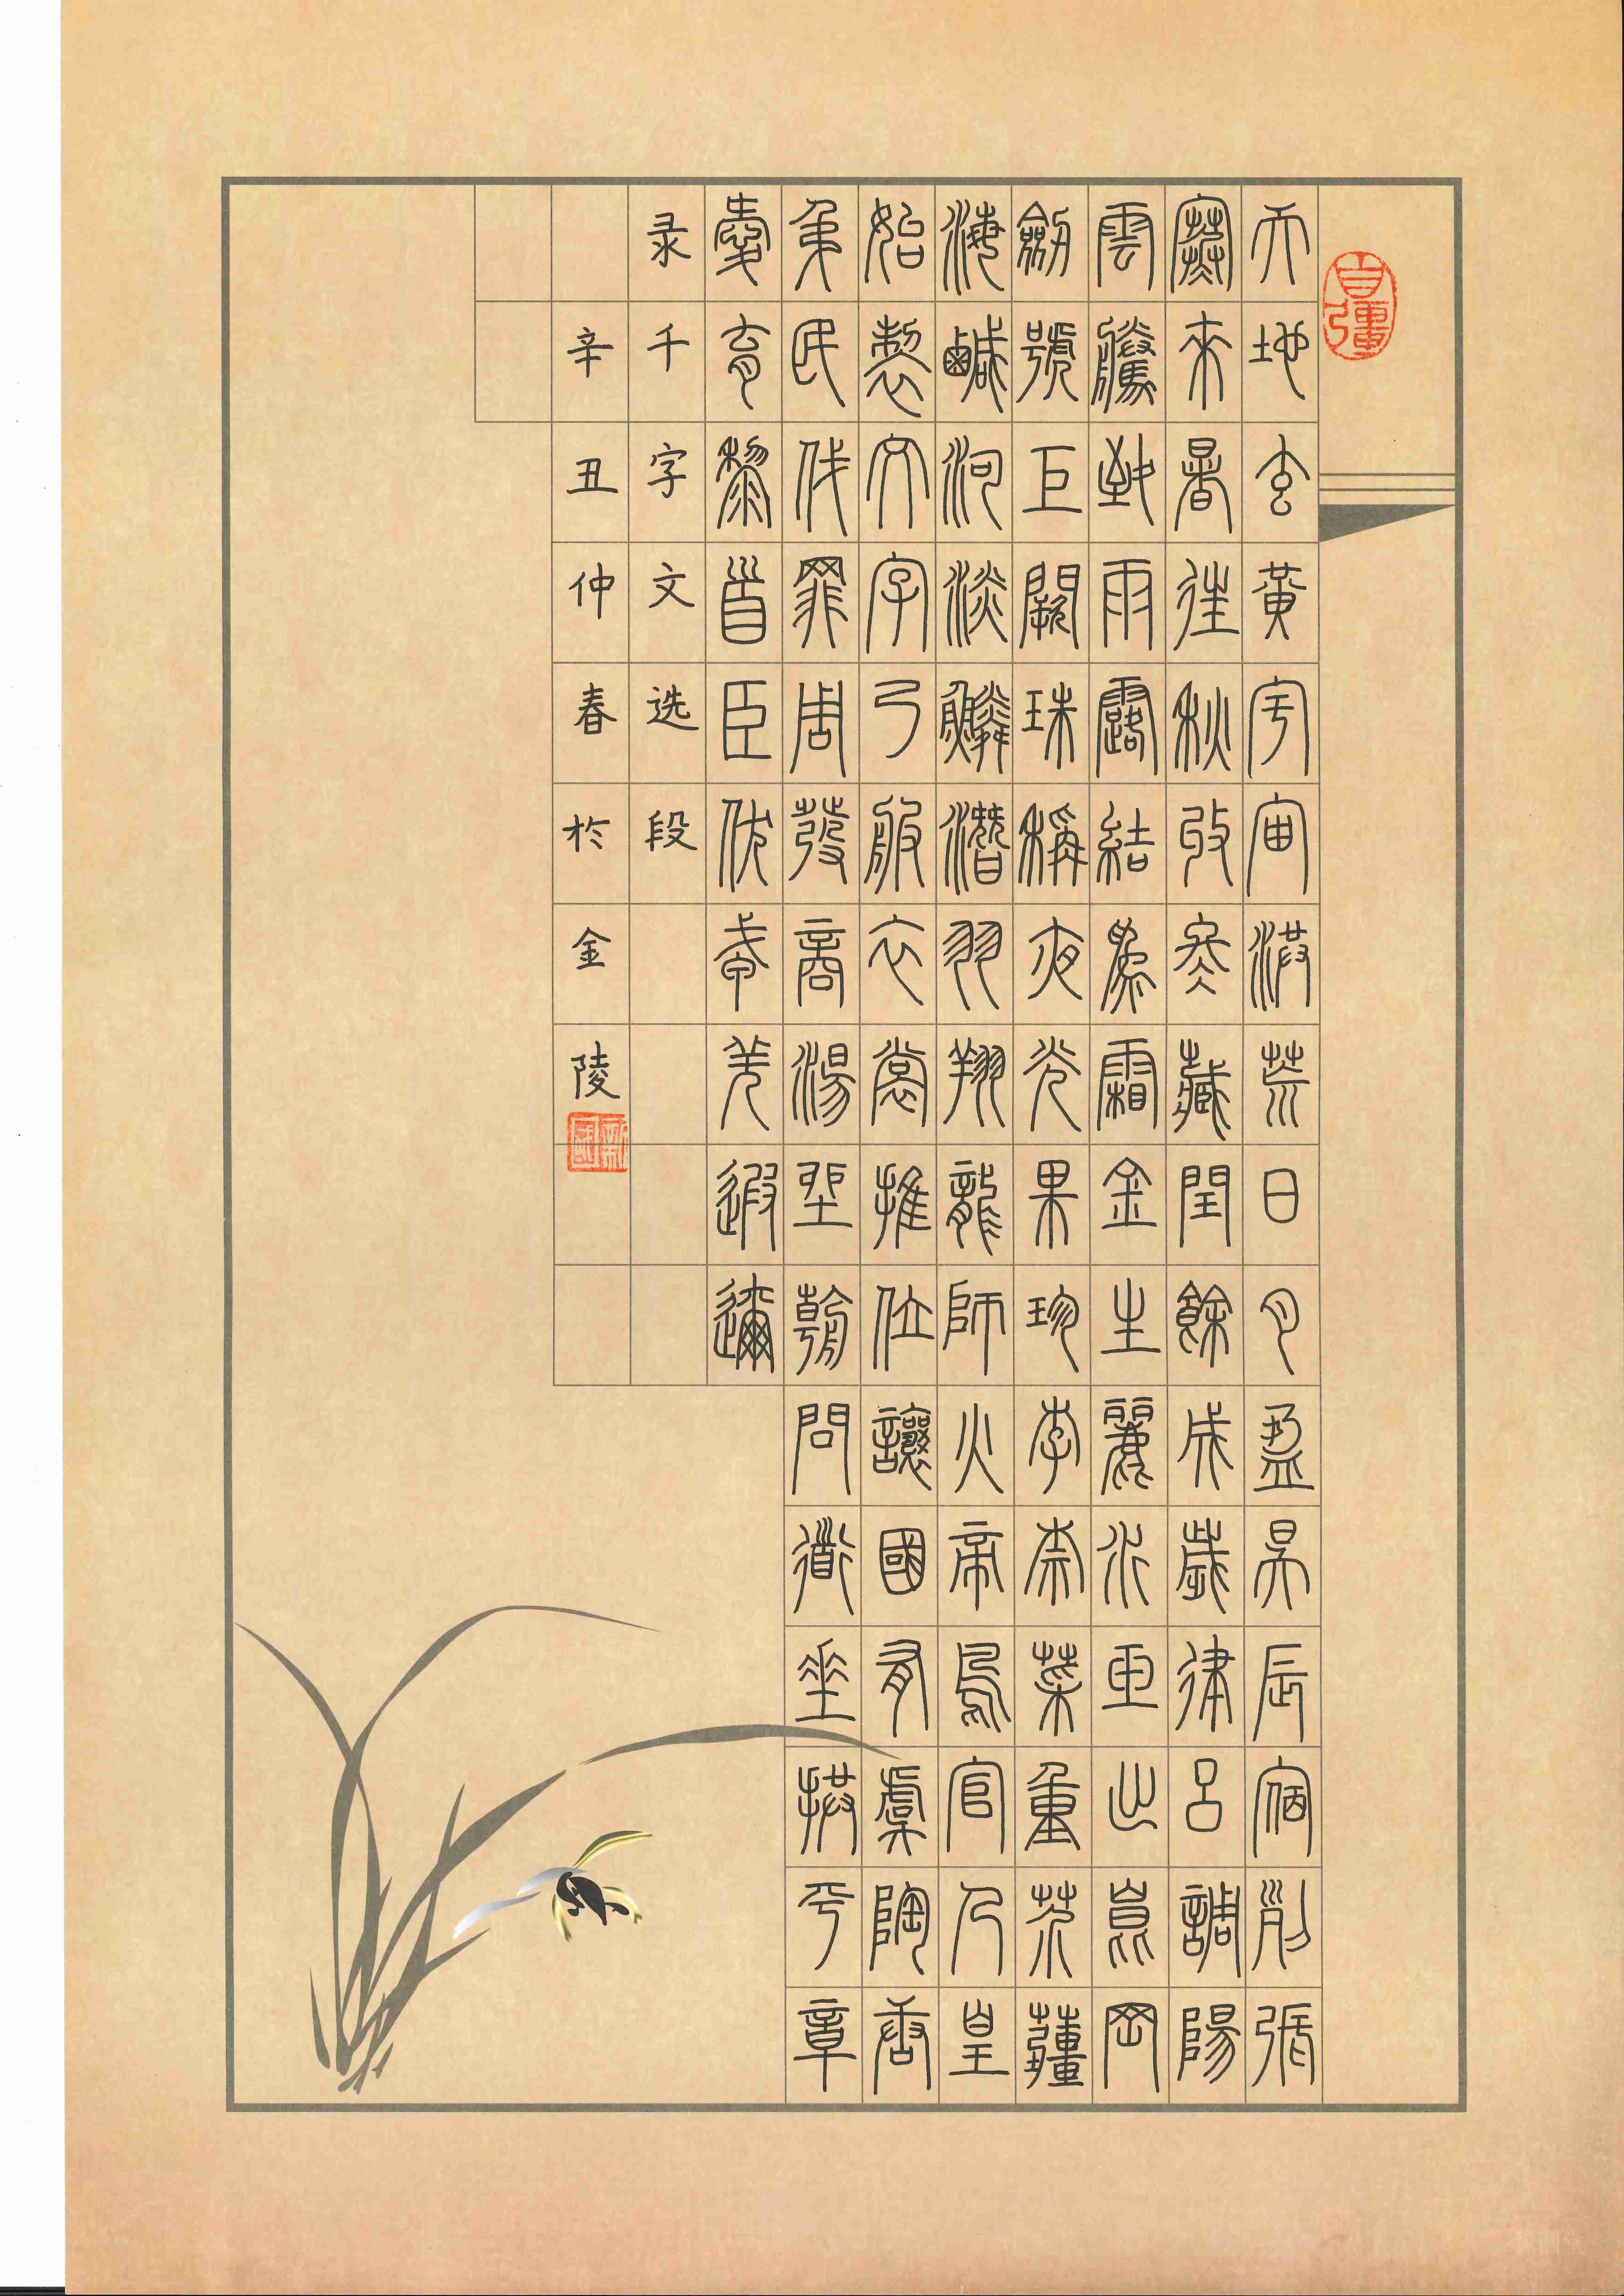 自彊
天地玄黃宇宙洪荒日月盈昃辰宿列張
寒來暑往秋收冬藏閏餘成歲律呂調陽
雲騰致雨露結為霜金生麗水玉出崑岡
劍號巨闕珠稱夜光果珍李柰菜重芥薑
海鹹河淡鱗潛羽翔龍師火帝鳥官人皇
始製文字乃服衣裳推位讓國有虞陶唐
弔民伐罪周發商湯坐朝問道垂拱平章
愛育黎首臣伏戎羌遐邇
录千字文选段
辛丑仲春於金陵